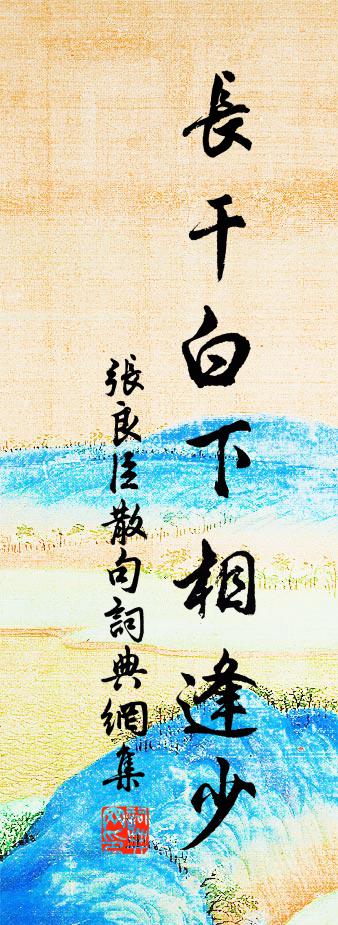 長干白下相逢少
張良臣散句詞典網集